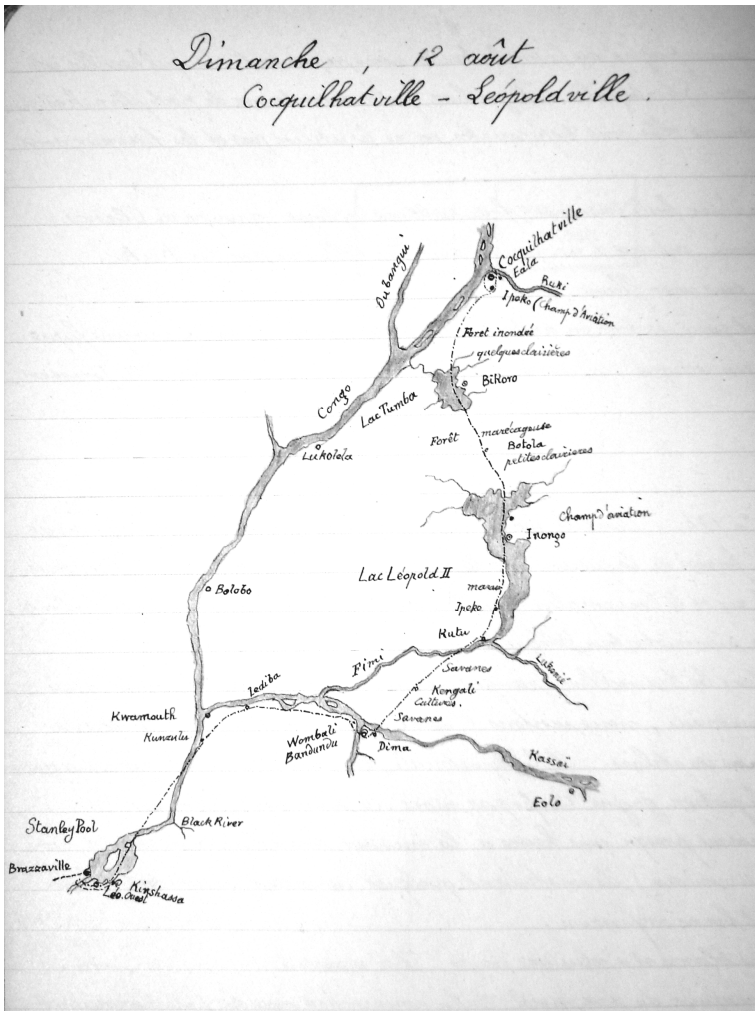 Dimanche, 12 août
Cocquilhatville – Léopoldville.
Oubangui
Cocquilhatville
Eala
Ruki
Ipeko (Champ d'Aviation
Foret inondée
quelques clairières
Bikoro
Congo
Lac Tumba
Forêt marécageuse
Botola
petites clairieres
Lukolela
Champ d'aviation
Inongo
Lac Léopold II
Bolobo
marais
Ipeko
Kutu
Fimi
Lukenié
Savanes
Kengali
Cultures.
Lediba
Kwamouth
Kunzulu
Savanes
Wombali
Bandundu
Dima
Kassaï
Eolo
Black River
Stanley Pool
Brazzaville
Kinshassa
Léo. Ouest